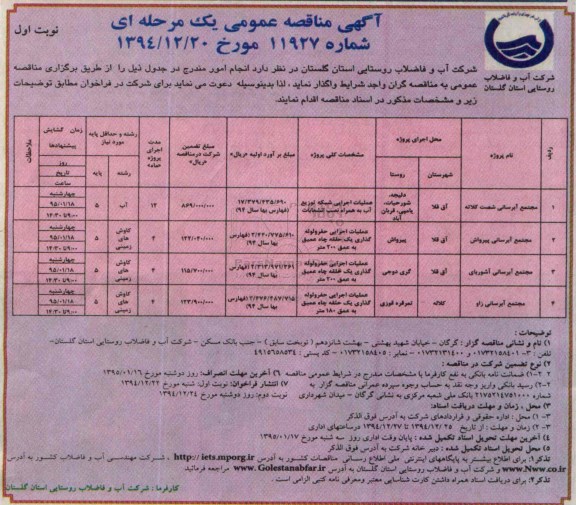 آگهی مناقصه عمومی یک مرحله ای
شماره ۱۱۹۲۷ مورخ ۱۳۹۴/۱۲/۲۰
نوبت اول
شرکت آب و فاضلاب
روستایی استان گلستان
شرکت آب و فاضلاب روستایی استان گلستان در نظر دارد انجام امور مندرج در جدول ذیل را از طریق برگزاری مناقصه
عمومی به مناقصه گران واجد شرایط واگذار نماید، لذا بدینوسیله دعوت می نماید برای شرکت در فراخوان مطابق توضیحات
زیر و مشخصات مذکور در اسناد مناقصه اقدام نمایند.
ردیف نام پروژه محل اجرای پروژه شهرستان روستا مشخصات کلی پروژه مبلغ برآورد اولیه «ریال» مبلغ تضمین شرکت درمناقصه «ریال» مدت اجرای پروژه «ماه» رشته و حداقل پایه مورد نیاز رشته پایه زمان گشایش پیشنهادها روز تاریخ ساعت ملاحظات
۱ مجتمع آبرسانی شصت کلاته آق قلا عملیات اجرایی شبکه توزیع آب به همراه نصب انشعابات ۱۷/۳۷۹/۴۳۵/۶۹۰ (فهارس بها سال ۹۴) ۸۶۹/۰۰۰/۰۰۰ ۱۲ آب ۵ چهارشنبه ۹۵/۰۱/۱۸
۲ مجتمع آبرسانی پیرواش آق قلا پیرواش عملیات اجرایی حفرولوله گذاری یک حلقه چاه عمیق به عمق ۲۰۰ متر (فهارس بها سال ۹۴) ۴ کاوش های زمینی ۵ چهارشنبه ۹۵/۰۱/۱۸
۳ مجتمع آبرسانی آق قلا گری دوجی عملیات اجرایی حفرولوله گذاری یک حلقه چاه عمیق به عمق ۲۰۰ متر (فهارس بها سال ۹۴) ۱۱۵/۷۰۰/۰۰۰ ۴ کاوش های زمینی ۵ چهارشنبه ۹۵/۰۱/۱۸
۴ مجتمع آبرسانی زاو کلاله تمرقره قوزی عملیات اجرایی حفرولوله گذاری یک حلقه چاه عمیق به عمق ۱۸۰ متر (فهارس بها سال ۹۴) ۱۲۳/۹۰۰/۰۰۰ ۴ کاوش های زمینی ۵ چهارشنبه ۹۵/۰۱/۱۸
توضیحات :
۱) نام و نشانی مناقصه گزار : گرگان – خیابان شهید بهشتی – بهشت شانزدهم ( نوبخت سابق ) – جنب بانک مسکن – شرکت آب و فاضلاب روستایی استان گلستان–
۲) نوع تضمین شرکت در مناقصه :
۱–۲) ضمانت نامه بانکی به نفع کارفرما با مشخصات مندرج در شرایط عمومی مناقصه ۶) آخرین مهلت انصراف: روز دوشنبه مورخ ۱۳۹۵/۰۱/۱۶
۲–۲) رسید بانکی واریز وجه نقد به حساب وجوه سپرده عمرانی مناقصه گزار به ۷) انتشار فراخوان: نوبت اول: شنبه مورخ ۱۳۹۴/۱۲/۲۲
شماره بانک ملی شعبه مرکزی به نشانی گرگان – میدان شهرداری نوبت دوم: روز دوشنبه مورخ ۱۳۹۴/۱۲/۲۴
۳) محل ، زمان و مهلت دریافت اسناد:
۱–۳) محل : اداره حقوقی و قراردادهای شرکت به آدرس فوق الذکر
۲–۳) زمان و مهلت : از تاریخ ۱۳۹۴/۱۲/۲۵ تا ۱۳۹۴/۱۲/۲۷ درساعتهای اداری
۴) آخرین مهلت تحویل اسناد تکمیل شده : پایان وقت اداری روز سه شنبه مورخ ۱۳۹۵/۰۱/۱۷
۵) محل تحویل اسناد تکمیل شده : دبیر خانه شرکت به آدرس فوق الذکر
تذکر۱: برای اطلاع بیشتر به پایگاههای اینترنتی ملی اطلاع رسانی مناقصات کشور به آدرس http://iets.mporg.ir ، شرکت مهندسی آب و فاضلاب کشور به آدرس
www.Nww.co.ir و شرکت آب و فاضلاب روستایی استان گلستان به آدرس www.Golestanabfar.ir مراجعه فرمائید.
تذکر۲: برای دریافت اسناد همراه داشتن کارت شناسایی معتبر ومعرفی نامه کتبی الزامی است .
کارفرما : شرکت آب و فاضلاب روستایی استان گلستان